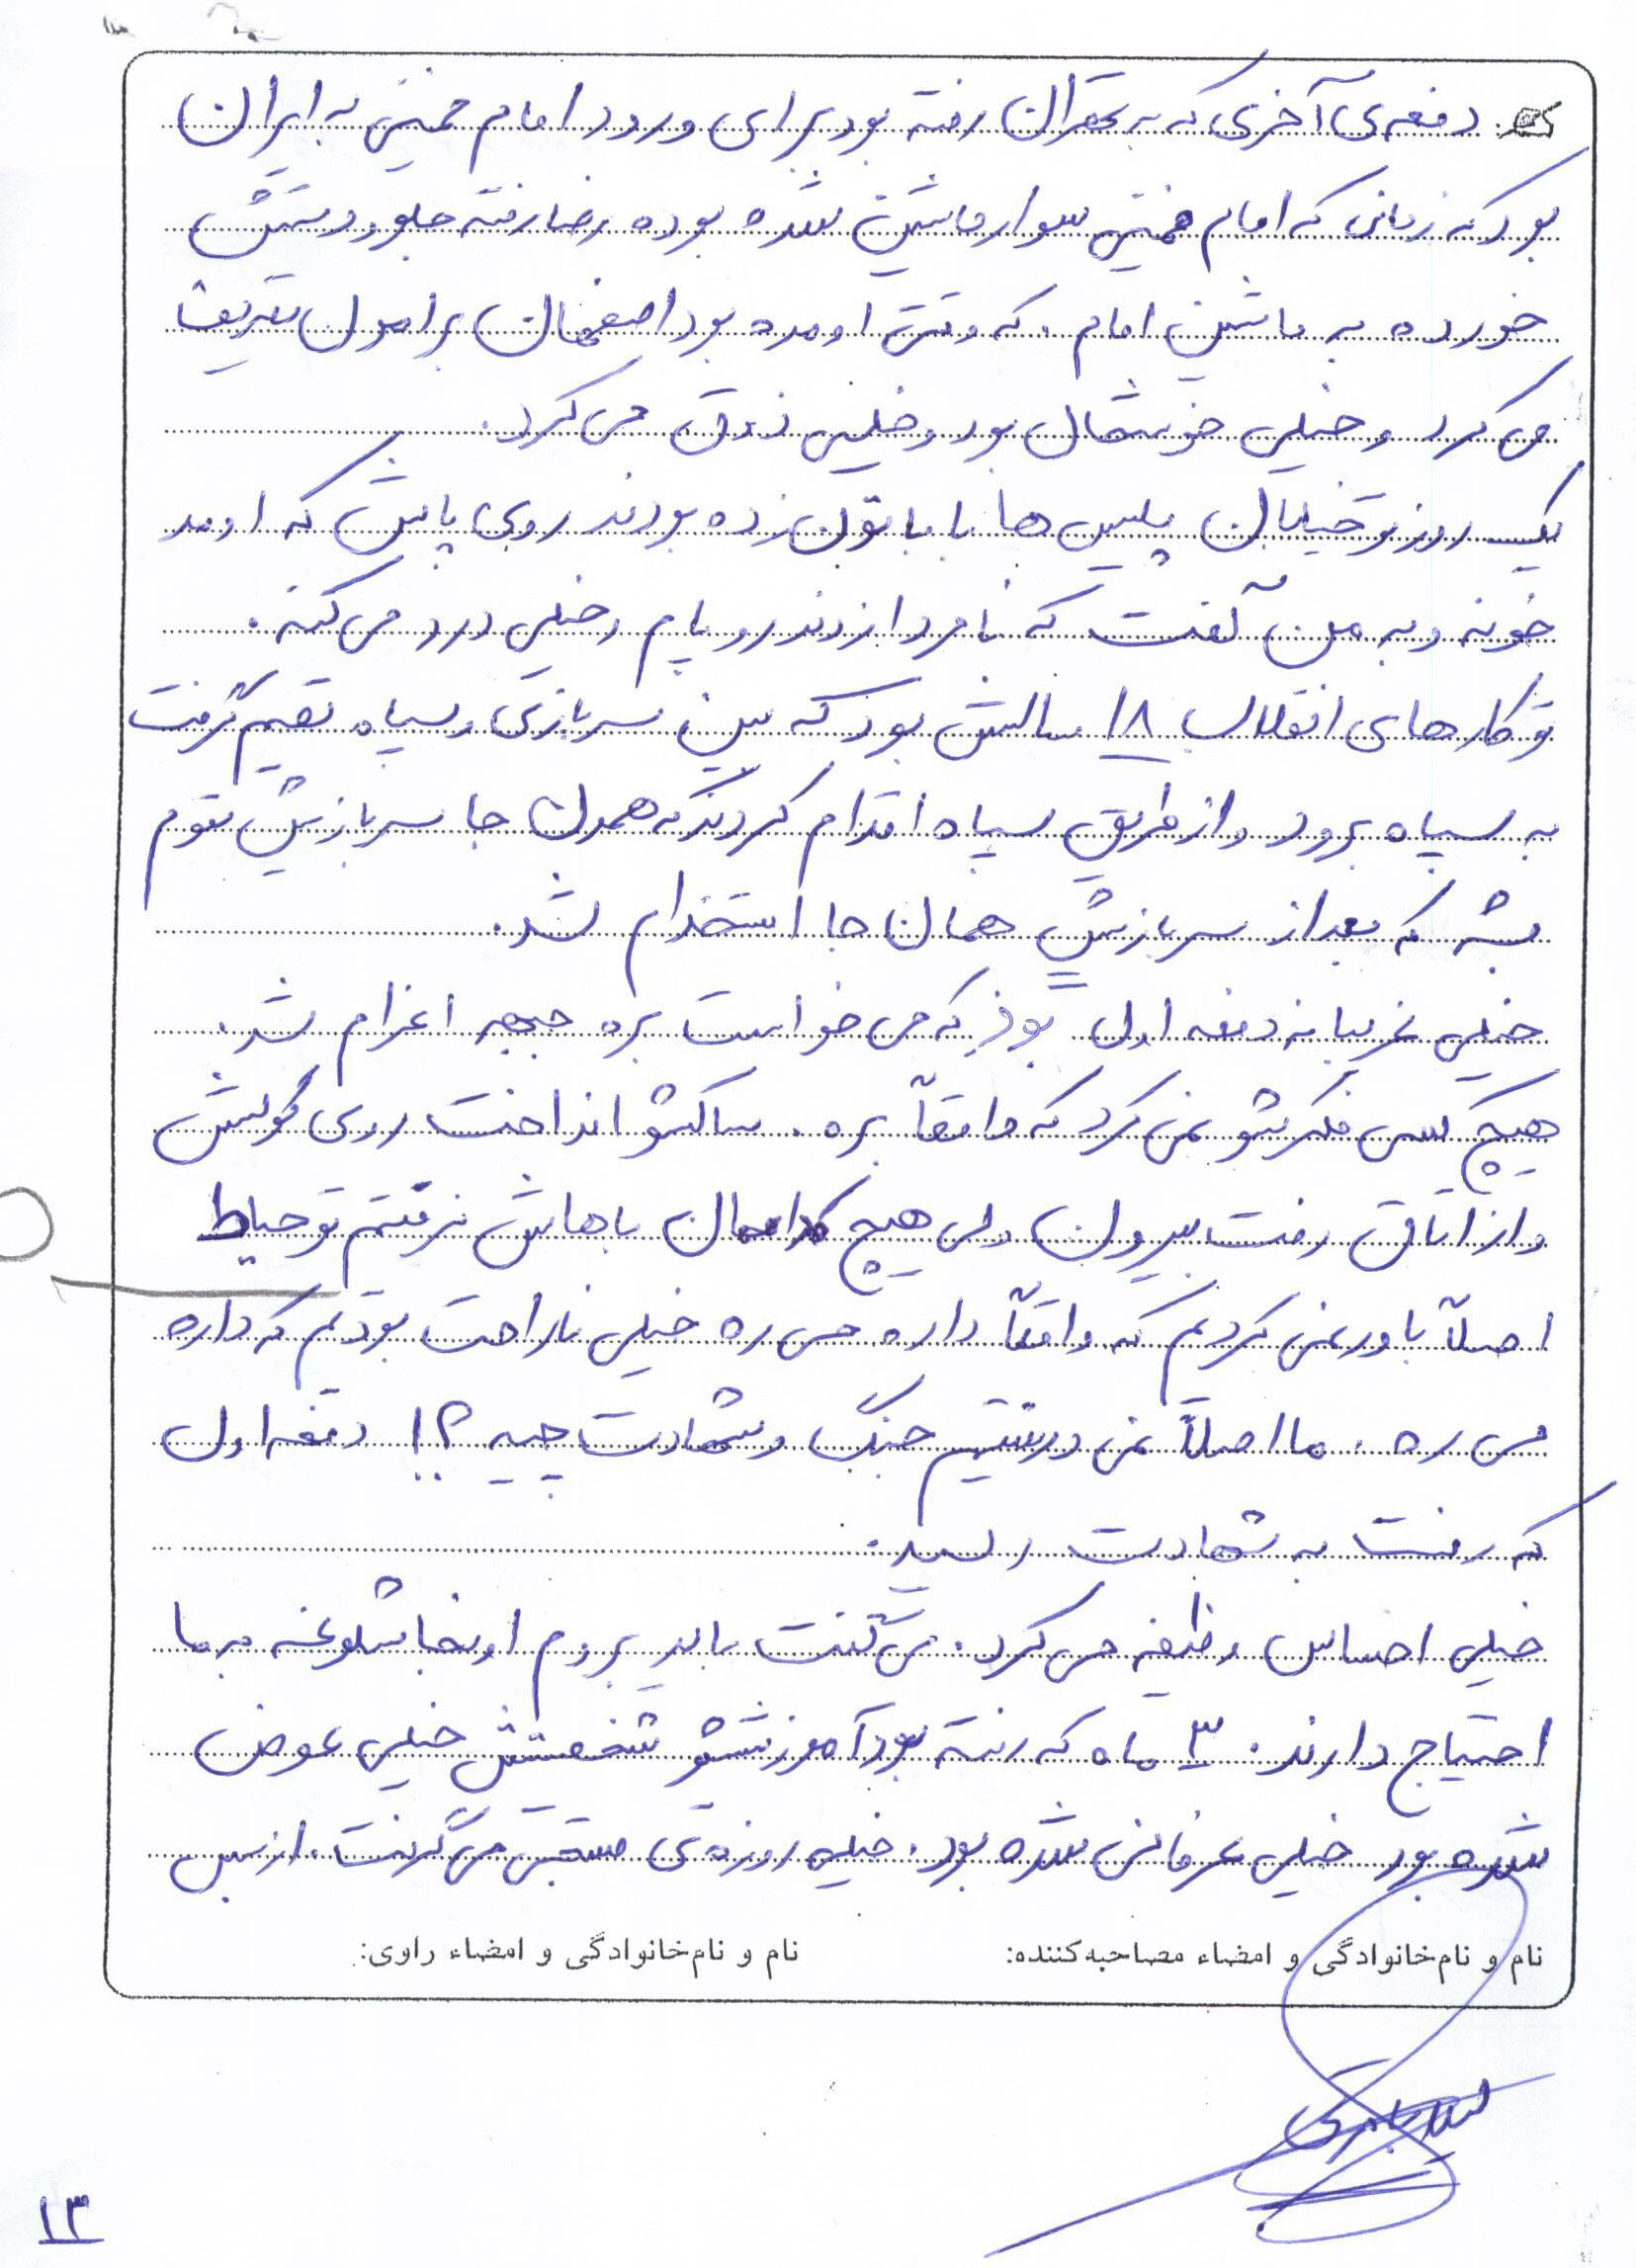 دفعه‌ی آخری که به تهران رفته بود برای ورود امام خمینی به ایران
بود که زمانی که امام خمینی سوار ماشین شده بوده رضا رفته جلو و دستش
خورده به ماشین امام. که وقتی اومده بود اصفهان برامون تعریف
می‌کرد و خیلی خوشحال بود و خیلی ذوق می‌کرد.
یک روز تو خیابان پلیس‌ها با باتون زده بودند روی پاش که اومد
خونه و به من گفت که نامردا زدند رو پام و خیلی درد می‌کنه.
تو کارهای انقلاب ۱۸ سالش بود که بین سربازی و سپاه تصمیم گرفت
به سپاه برود و از طریق سپاه اقدام کردند که همون جا سربازیش تموم
بشه که بعد از سربازیش همان جا استخدام شد.
خیلی غریبانه دفعه اول بود که می‌خواست بره جبهه اعزام شد.
هیچ کسی فکرشو نمی‌کرد که واقعاً بره. ساکشو انداخت روی کولش
و از اتاق رفت بیرون ولی هیچ کداممان باهاش نرفتیم تو حیاط
اصلاً باور نمی‌کردیم که واقعاً داره می‌ره خیلی ناراحت بودیم که داره
می‌ره. ما اصلاً نمی‌دونستیم جنگ و شهادت چیه؟! دفعه اول
که رفت به شهادت رسید.
خیلی احساس وظیفه می‌کرد. می‌گفت باید بروم اونجا شلوغه به ما
احتیاج دارند. ۳ ماه که رفته بود آموزششو شخصیتش خیلی عوض
شده بود خیلی عرفانی شده بود. خیلی روزه‌ی مستحبی می‌گرفت. از بس
نام و نام‌خانوادگی و امضاء مصاحبه‌کننده: نام و نام‌خانوادگی و امضاء راوی:
۱۳